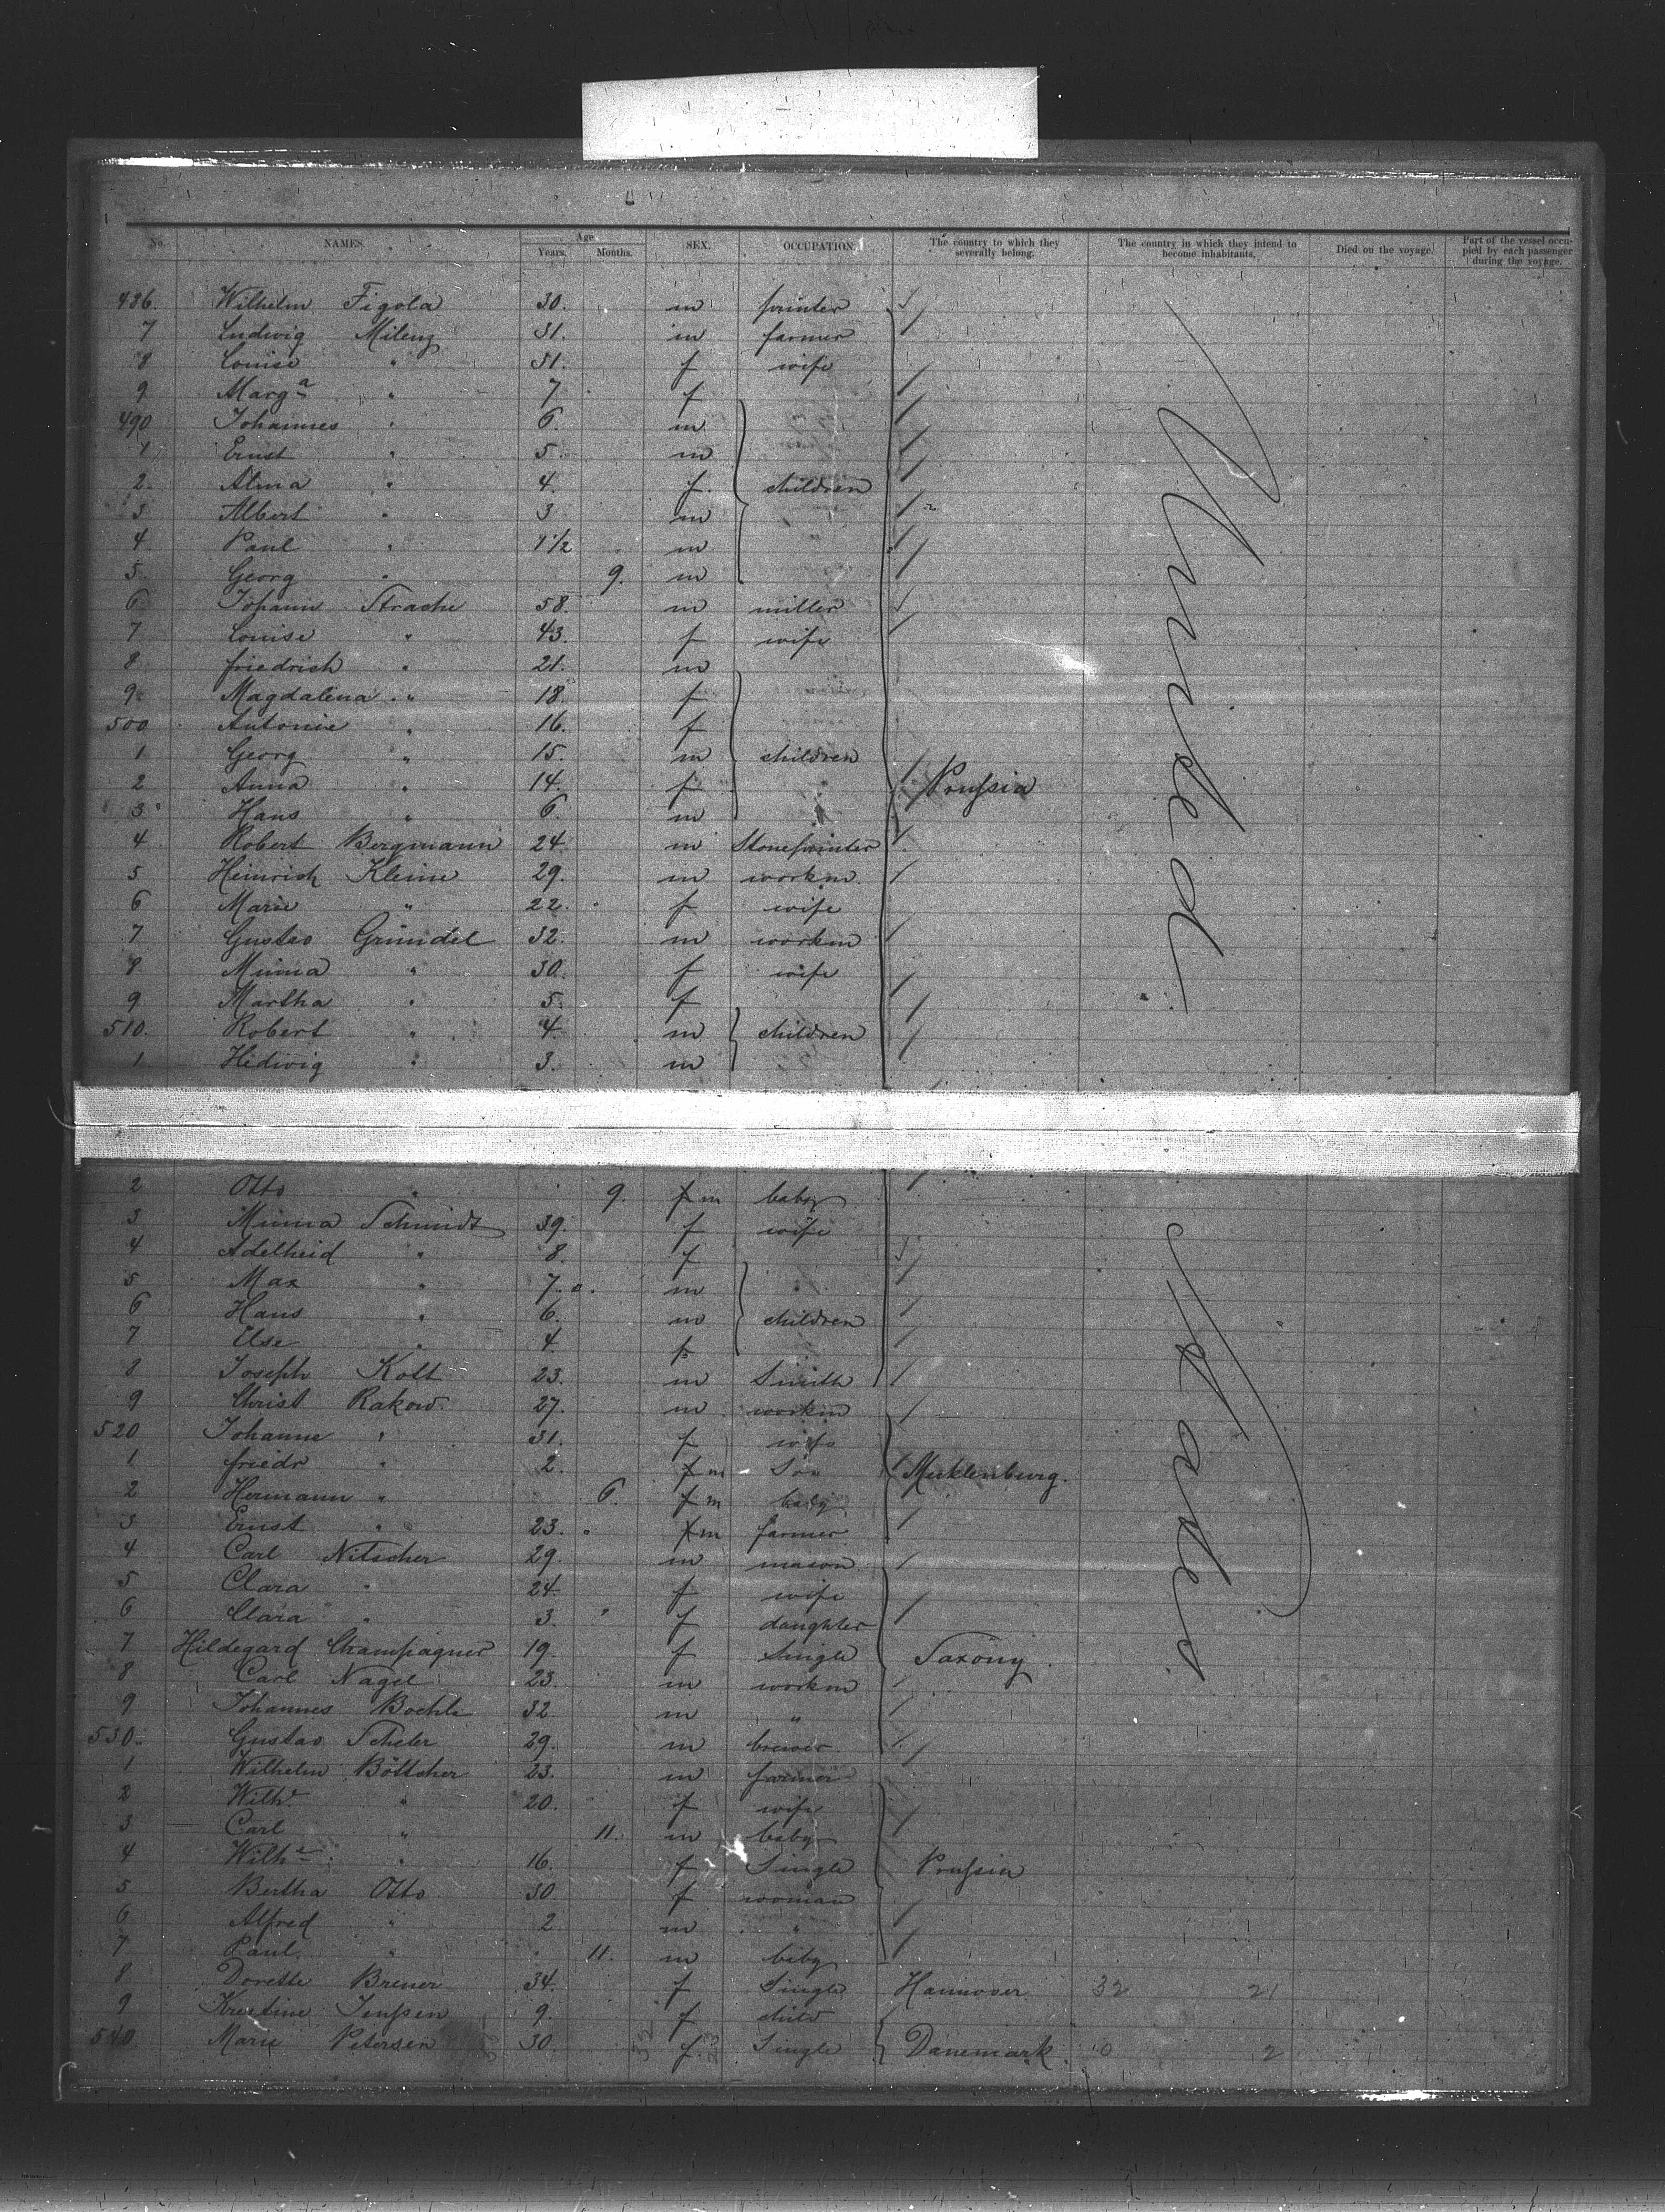 No. NAMES. Age Years. Months. SEX. OCCUPATION. The country to which they severally belong. The country in which they intend to become inhabitants. Died on the voyage. Part of the vessel occupied by each passenger during the voyage.
486. Wilhelm Figola 30. m printer
7 Ludwig Milenz 31. m farmer
8 Louise " 31. f wife
9 Marga " 7 f
490 Johannes " 6. m
1 Ernst " 5. m
2. Alma " 4. f. children
3 Albert " 3 m
4 Paul " 1 1/2 m
5 Georg " 9. m
6 Johann Strache 58. m miller
7 Louise " 43. f wife
8 friedrich " 21. m
9. Magdalena " 18. f
500 Antonie " 16. f
1 Georg " 15. m children
2 Anna " 14. f Prussia
3 Hans " 6. m
4 Robert Bergmann 24. m Stoneprinter
5 Heinrich Kleine 29. m workm.
6 Marie " 22. f wife
7 Gustav Gründel 32. m workm
8 Minna " 30. f wife
9 Martha " 5. f
510. Robert " 4. m children
1 Hedwig " 3. m
2 Otto " 9. f m baby
3 Minna Schmidt 39. f wife
4 Adelheid " 8. f
5 Max " 7. m
6 Hans " 6. m children
7 Else " 4. f
8 Joseph Kolt 23. m Smith
9 Christ Rakow 27. m workm
520 Johanne " 31. f wife
1 friedr " 2. f m Son Mecklenburg.
2 Hermann " 6. f m baby
3 Ernst " 23. f m farmer
4 Carl Nitscher 29. m mason
5 Clara " 24 f wife
6 Clara " 3. f daughter
7 Hildegard Champagner 19. f Single Saxony.
8 Carl Nagel 23. m workm
9 Johannes Boehle 32. m "
530. Gustav Scheler 29. m brewer
1 Wilhelm Böttcher 23. m farmer
2 Wilhe " 20. f wife
3 Carl " 11. m baby
4 Wilhe " 16. f Single Prussia
5 Bertha Otto 30 f woman
6 Alfred " 2. m "
7 Paul " 11. m baby
8 Dorette Brener 34. f Single Hannover 32 21
9 Krestine Jenssen 9. f child
540 Marie Petersen 30. f. Single Danemark. 0 2
United
States